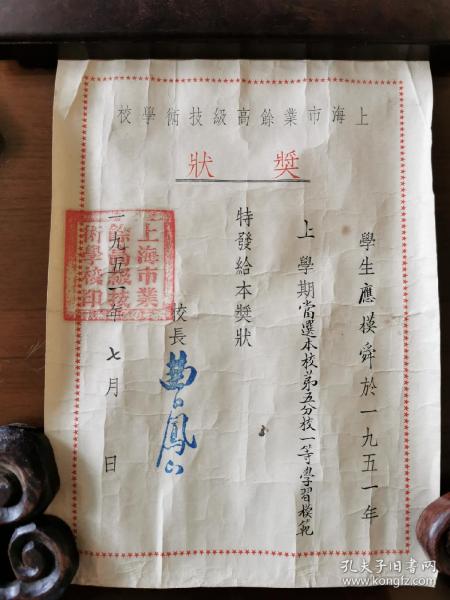 上海市業餘高級技術學校
獎狀
學生應模舜於一九五一年
上學期當選本校第五分校一等學習模範
特發給本獎狀
校長
一九五一年七月 日
上海市業
餘高級技
術學校印
孔夫子旧书网
www.kongfz.com